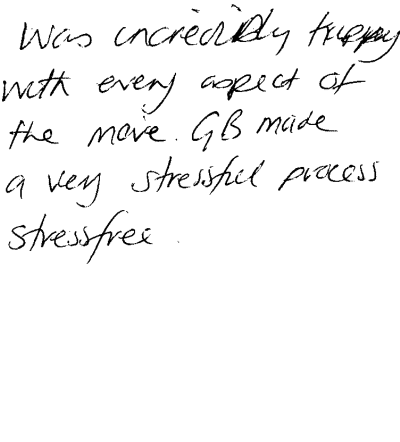 Was incredibly happy
with every aspect of
the move. GB made
a very stressful process
stressfree.